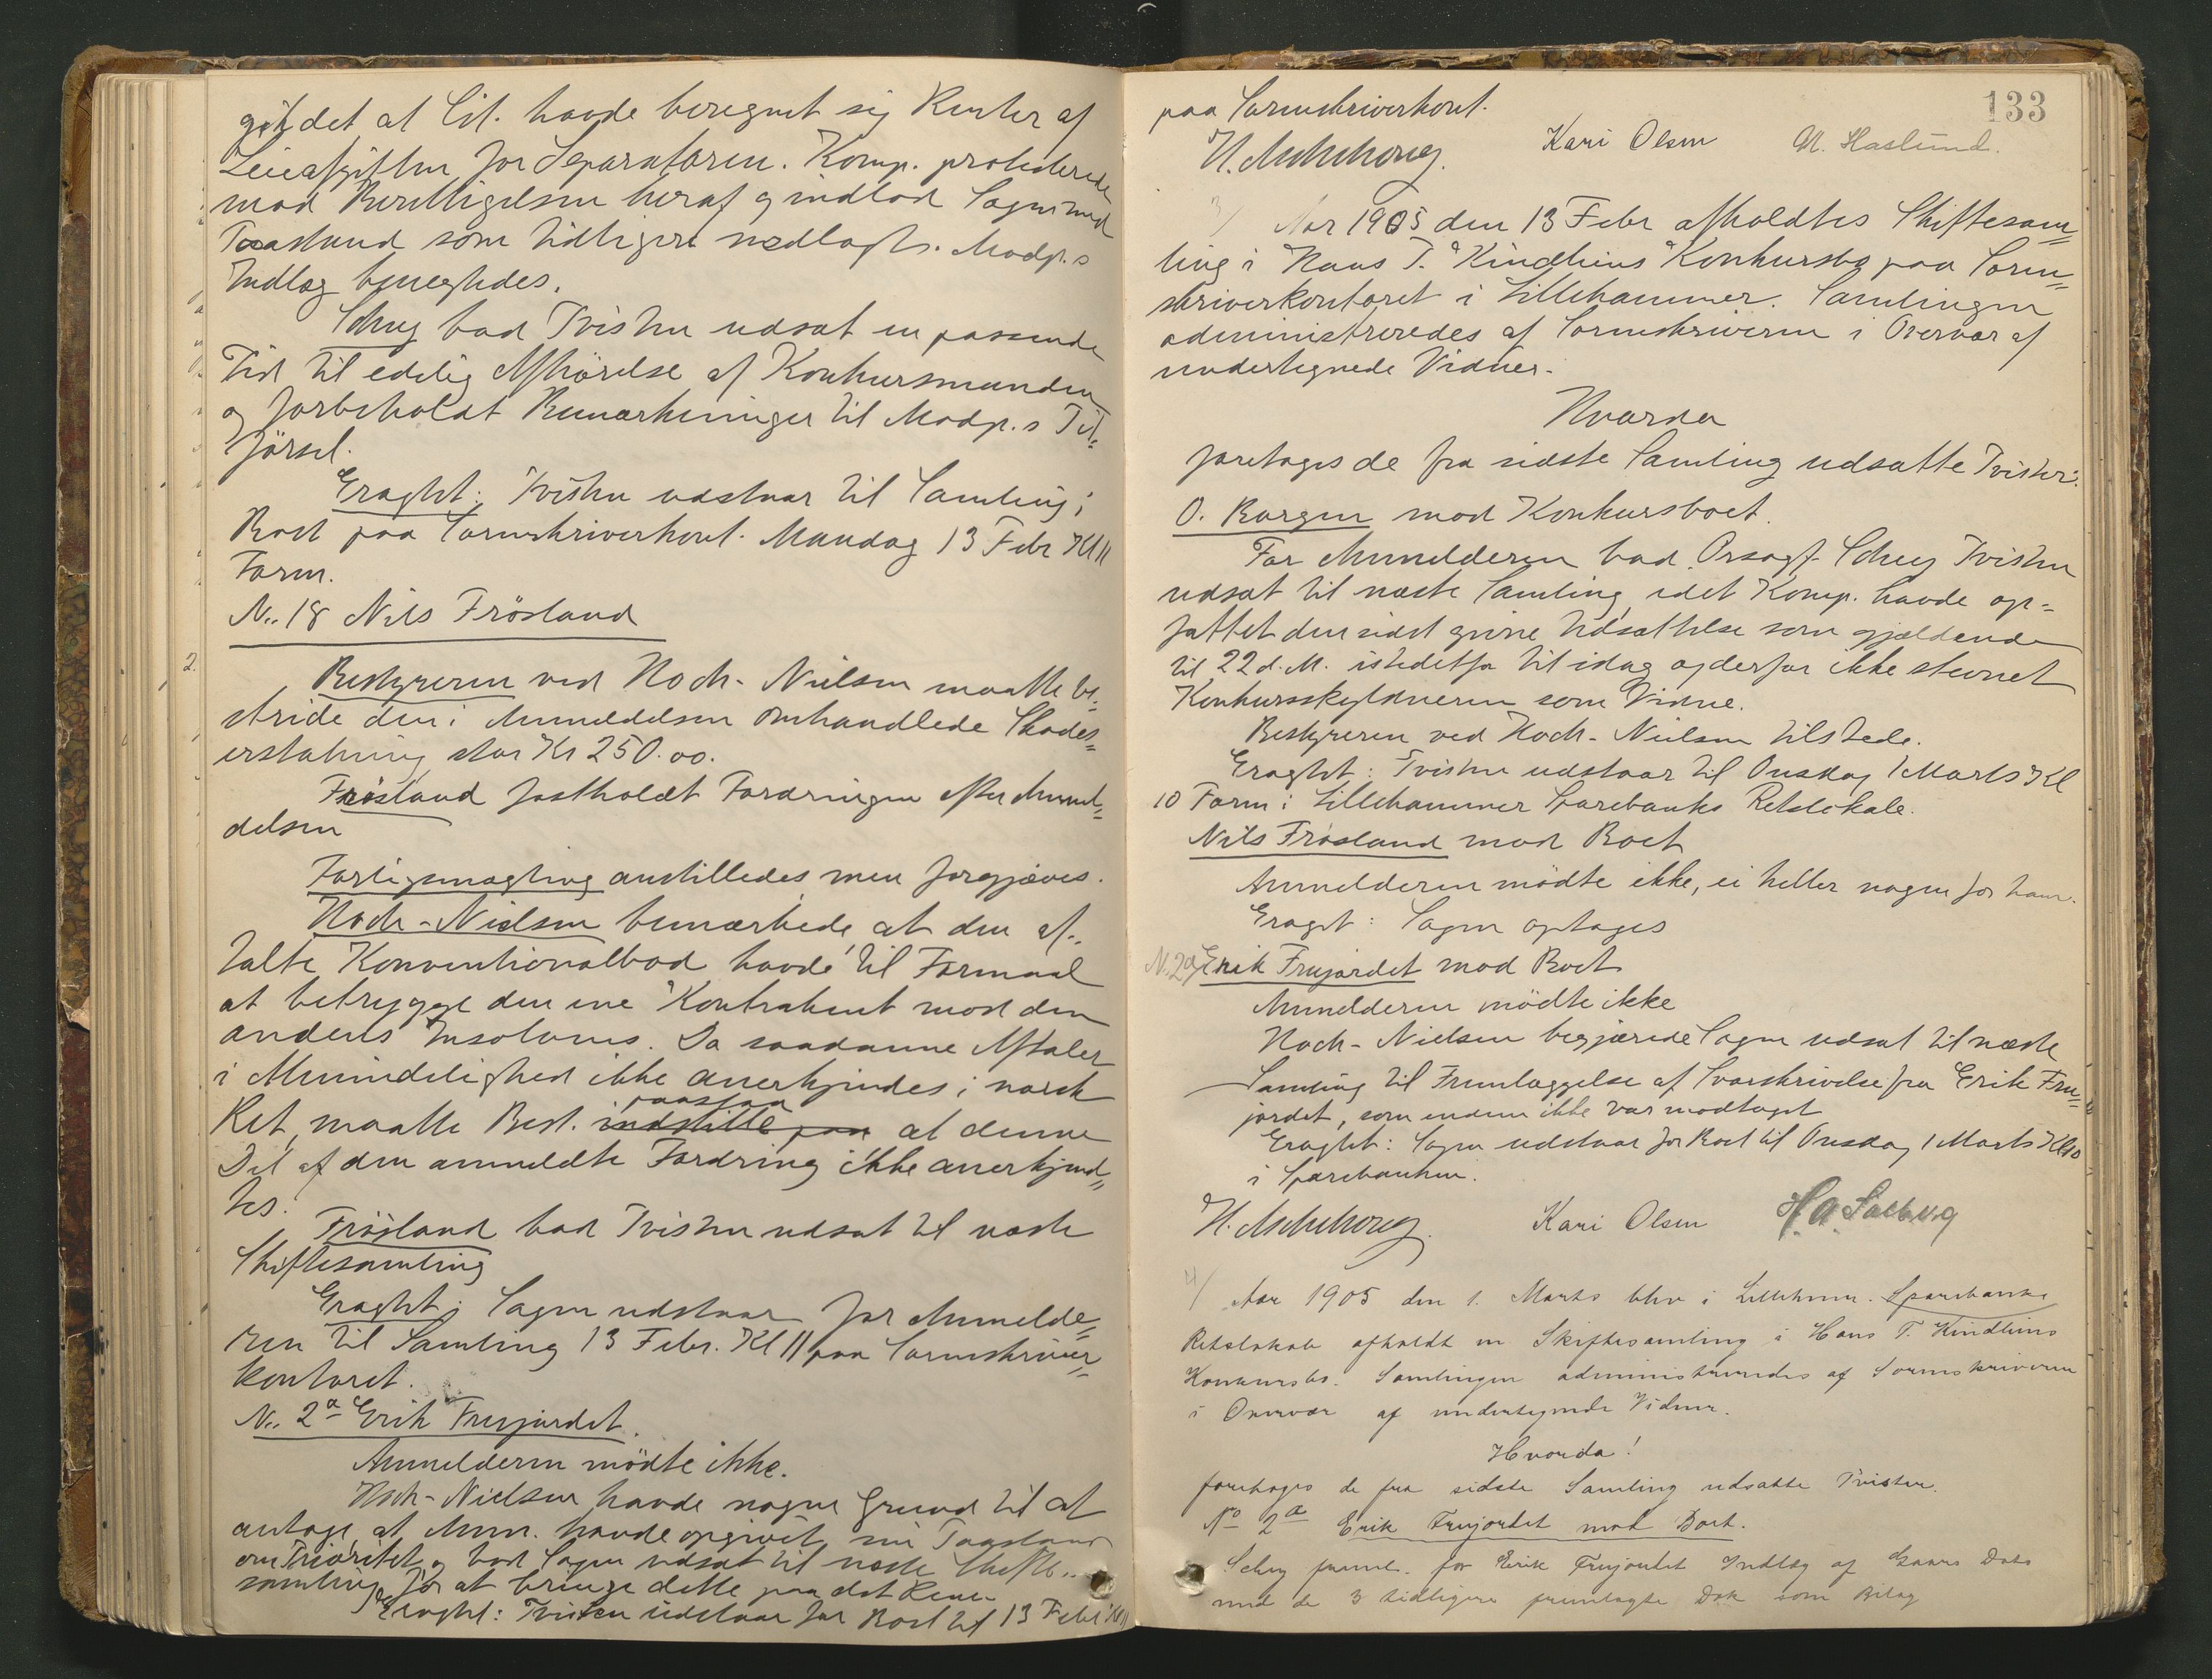 gik det at Cit. havde beregnet sig Renter af
Leieafgiften for Separatoren. Komp. protesterede
mod Berettigelsen heraf og indlod Sagen med
Paastand som tidligere nedlagt. Modp.s
Indlæg benegtedes.
Schey bad Tvisten udsat en passende
Tid til edelig Afhörelse af Konkursmanden
og forbeholdt Bemærkninger til Modp.s Til-
försel.
Eragtet: Tvisten udstaar til Samling i
Boet paa Sorenskriverkont. Mandag 13 Febr Kl 11
Form.
No. 18 Nils Frösland
2.
Bestyreren ved Hoch-Nielsen maatte be-
stride den i Anmeldelsen omhandlede Skades-
erstatning stor Kr 250.00.
Frösland fastholdt Fordringen efter Anmel-
delsen
Forligsmægling anstilledes men forgjæves.
Hoch-Nielsen bemærkede, at den af-
talte Konventionalbod havde til Formaal
at betrygge den ene Kontrahent mod den
andens Insolvens. Da saadanne Aftaler
i Almindelighed ikke anerkjendes i norsk
paastaa
Ret, maatte Best. indstille paa at denne
Del af den anmeldte Fordring ikke anerkjend-
tes.
Frösland bad Tvisten udsat til næste
Skiftesamling
Eragtet: Sagen udstaar for Anmelde-
ren til Samling 13 Febr. Kl 11 paa Sorenskriver-
kontoret.
No. 2a Erik Frujordet.
Anmelderen mödte ikke.
Hoch-Nielsen havde nogen Grund til at
antage, at Anm. havde opgivet sin Paastand
om Prioritet og bad Sagen udsat til næste Skifte-
samling for at bringe dette paa det Rene.
Eragtet: Tvisten udstaar for Boet til 13 Febr. Kl 11
133
paa Sorenskriverkont.
H. Aschehoug. Kari Olsen M. Haslund.
3/ Aar 1905 den 13 Febr afholdtes Skiftesam-
ling i Hans T. Kindlins Konkursbo paa Soren-
skriverkontoret i Lillehammer. Samlingen
administreredes af Sorenskriveren i Overvær af
undertegnede Vidner.
Hvorda
foretoges de fra sidste Samling udsatte Tvister:
O. Bargen mod Konkursboet.
For Anmelderen bad Orsagf. Schey Tvisten
udsat til næste Samling, idet Komp. havde op-
fattet den sidst givne Udsættelse som gjældende
til 22 d. M. istedetfor til idag og derfor ikke stevnet
Konkursskyldneren som Vidne.
Bestyreren ved Hoch-Nielsen tilstede.
Eragtet: Tvisten udstaar til Onsdag 1 Marts Kl
10 Form i Lillehammer Sparebanks Retslokale.
Nils Frösland mod Boet
Anmelderen mödte ikke, ei heller nogen for ham.
Eragt: Sagen optages
N. 2a Erik Frujordet mod Boet
Anmelderen mödte ikke
Hoch-Nielsen begjærede Sagen udsat til næste
Samling til Fremlæggelse af Svarskrivelse fra Erik Fru-
jordet, som endnu ikke var modtaget
Eragtet: Sagen udstaar for Boet til Onsdag 1 Marts Kl 10
i Sparebanken.
H. Aschehoug. Kari Olsen H. A. Salberg
4/ Aar 1905 den 1. Marts blev i Lillehmr. Sparebanks
Retslokale afholdt en Skiftesamling i Hans T. Kindlins
Konkursbo. Samlingen administreredes af Sorenskriveren
i Overvær af undertegnede Vidner.
Hvorda!
foretoges de fra sidste Samling udsatte Tvister.
No 2a Erik Frujordet mod Boet.
Schey freml. for Erik Frujordet Indlæg af Gaars Dato
med de 3 tidligere fremlagte Dok som Bilag